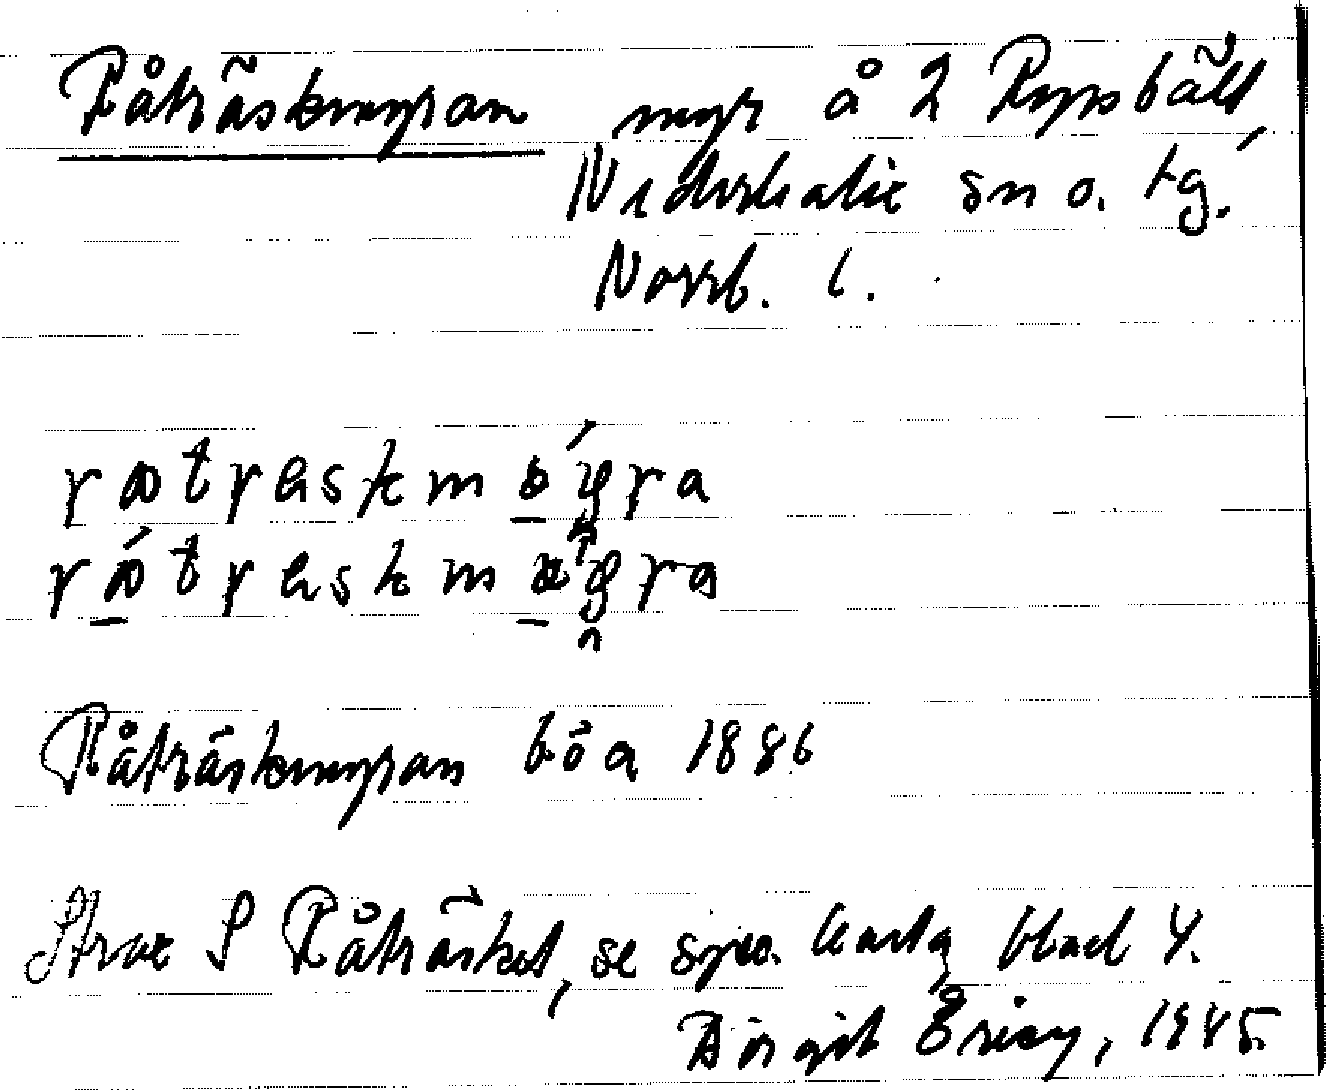 Råträskmyran myr å 2 Rypsbält,
Nederkalix sn o. tg.
Norrb. l.
Råträskmyran böa 1886
Strax S Råträsket, se spec. karta blad 4.
Birgit Ericy, 1945.